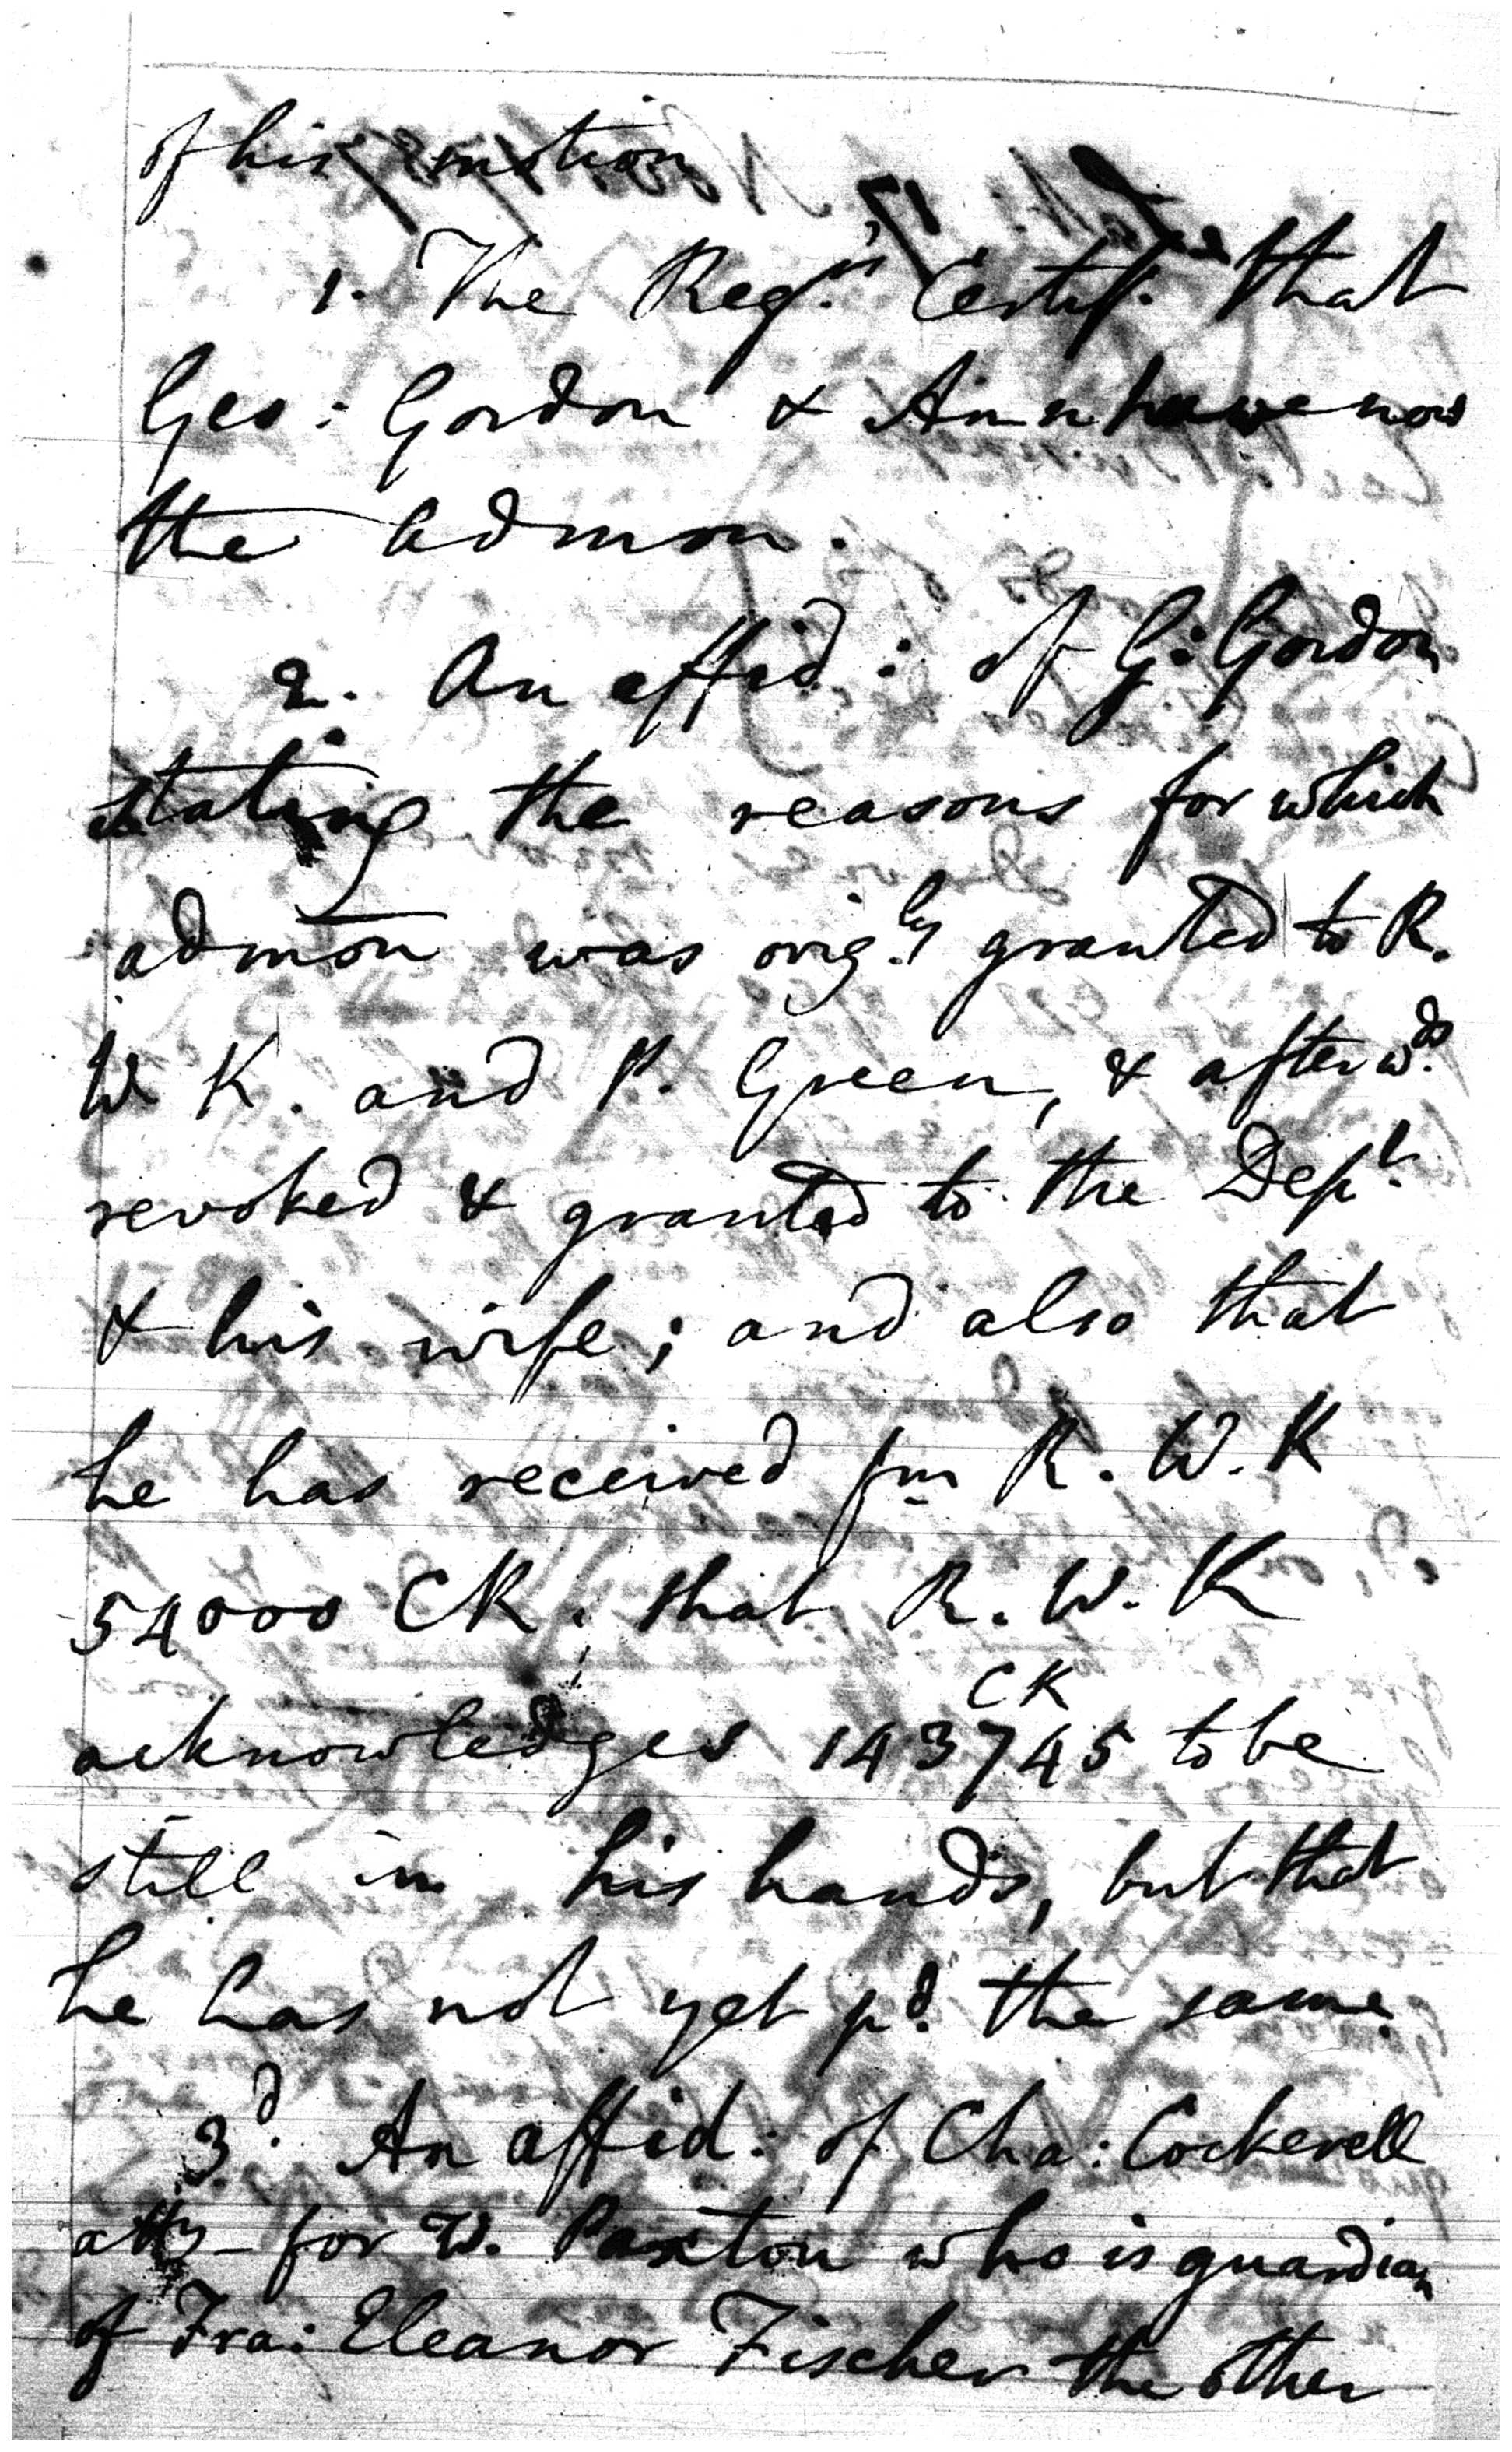 of his motion
1. The Reg.rs Certif. that
Geo: Gordon & Ann have now
the admon.
2. An affid: of G: Gordon
stating the reasons for which
admon was orig.ly granted to R.
W K. and P. Green, & afterw.ds
revoked & granted to the Dep.t
& his wife; and also that
he has received fm R. W. K
54000 CR. that R. W. K
acknowledges 143745 CR to be
still in his hands, but that
he has not yet p.d the same.
3.d An affid: of Cha: Cockerell
atty - for W. Paxton who is guardian
of Fra: Eleanor Fischer the other